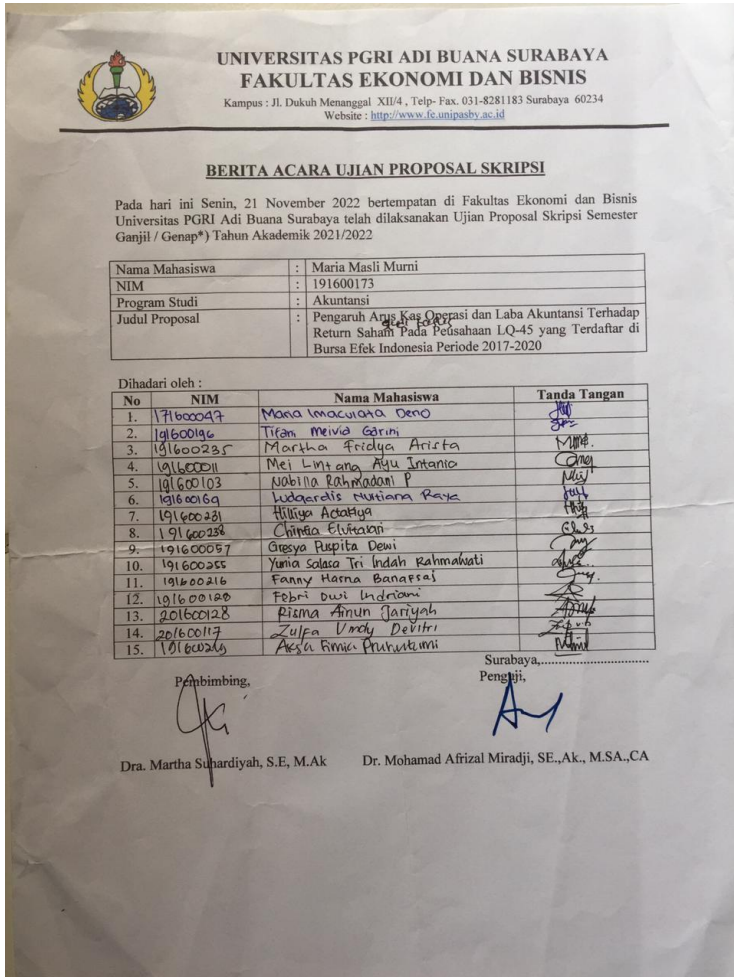 UNIVERSITAS PGRI ADI BUANA SURABAYA
FAKULTAS EKONOMI DAN BISNIS
Kampus : Jl. Dukuh Menanggal XII/4 , Telp- Fax. 031-8281183 Surabaya 60234
Website : http://www.fe.unipasby.ac.id
BERITA ACARA UJIAN PROPOSAL SKRIPSI
Pada hari ini Senin, 21 November 2022 bertempatan di Fakultas Ekonomi dan Bisnis
Universitas PGRI Adi Buana Surabaya telah dilaksanakan Ujian Proposal Skripsi Semester
Ganjil / Genap*) Tahun Akademik 2021/2022
Nama Mahasiswa : Maria Masli Murni
NIM : 191600173
Program Studi : Akuntansi
Judul Proposal : Pengaruh Arus Kas Operasi dan Laba Akuntansi Terhadap
Return Saham Pada Peusahaan LQ-45 yang Terdaftar di
Bursa Efek Indonesia Periode 2017-2020
Dihadari oleh :
No NIM Nama Mahasiswa Tanda Tangan
1. 171600047 Maria Imaculata Deno
2. 191600196 Titani Meivia Garini
3. 191600235 Martha Fridya Arista
4. 191600011 Mei Lintang Ayu Intania
5. 191600103 Nabilla Rahmadani P
6. 191600169 Ludgardis Nurtiana Raya
7. 191600231 Hilliya
8. 191600238 Chintia Elvitasari
9. 191600057 Gresya Puspita Dewi
10. 191600255 Yunia Salasa Tri Indah Rahmawati
11. 191600216 Fanny Hasna
12. 191600128 Febri Dwi Indriani
13. 201600128 Risma Ainun Jariyah
14. 201600117 Zulfa Devitri
15.
Surabaya,................................
Pembimbing, Penguji,
Dra. Martha Suhardiyah, S.E, M.Ak Dr. Mohamad Afrizal Miradji, SE.,Ak., M.SA.,CA